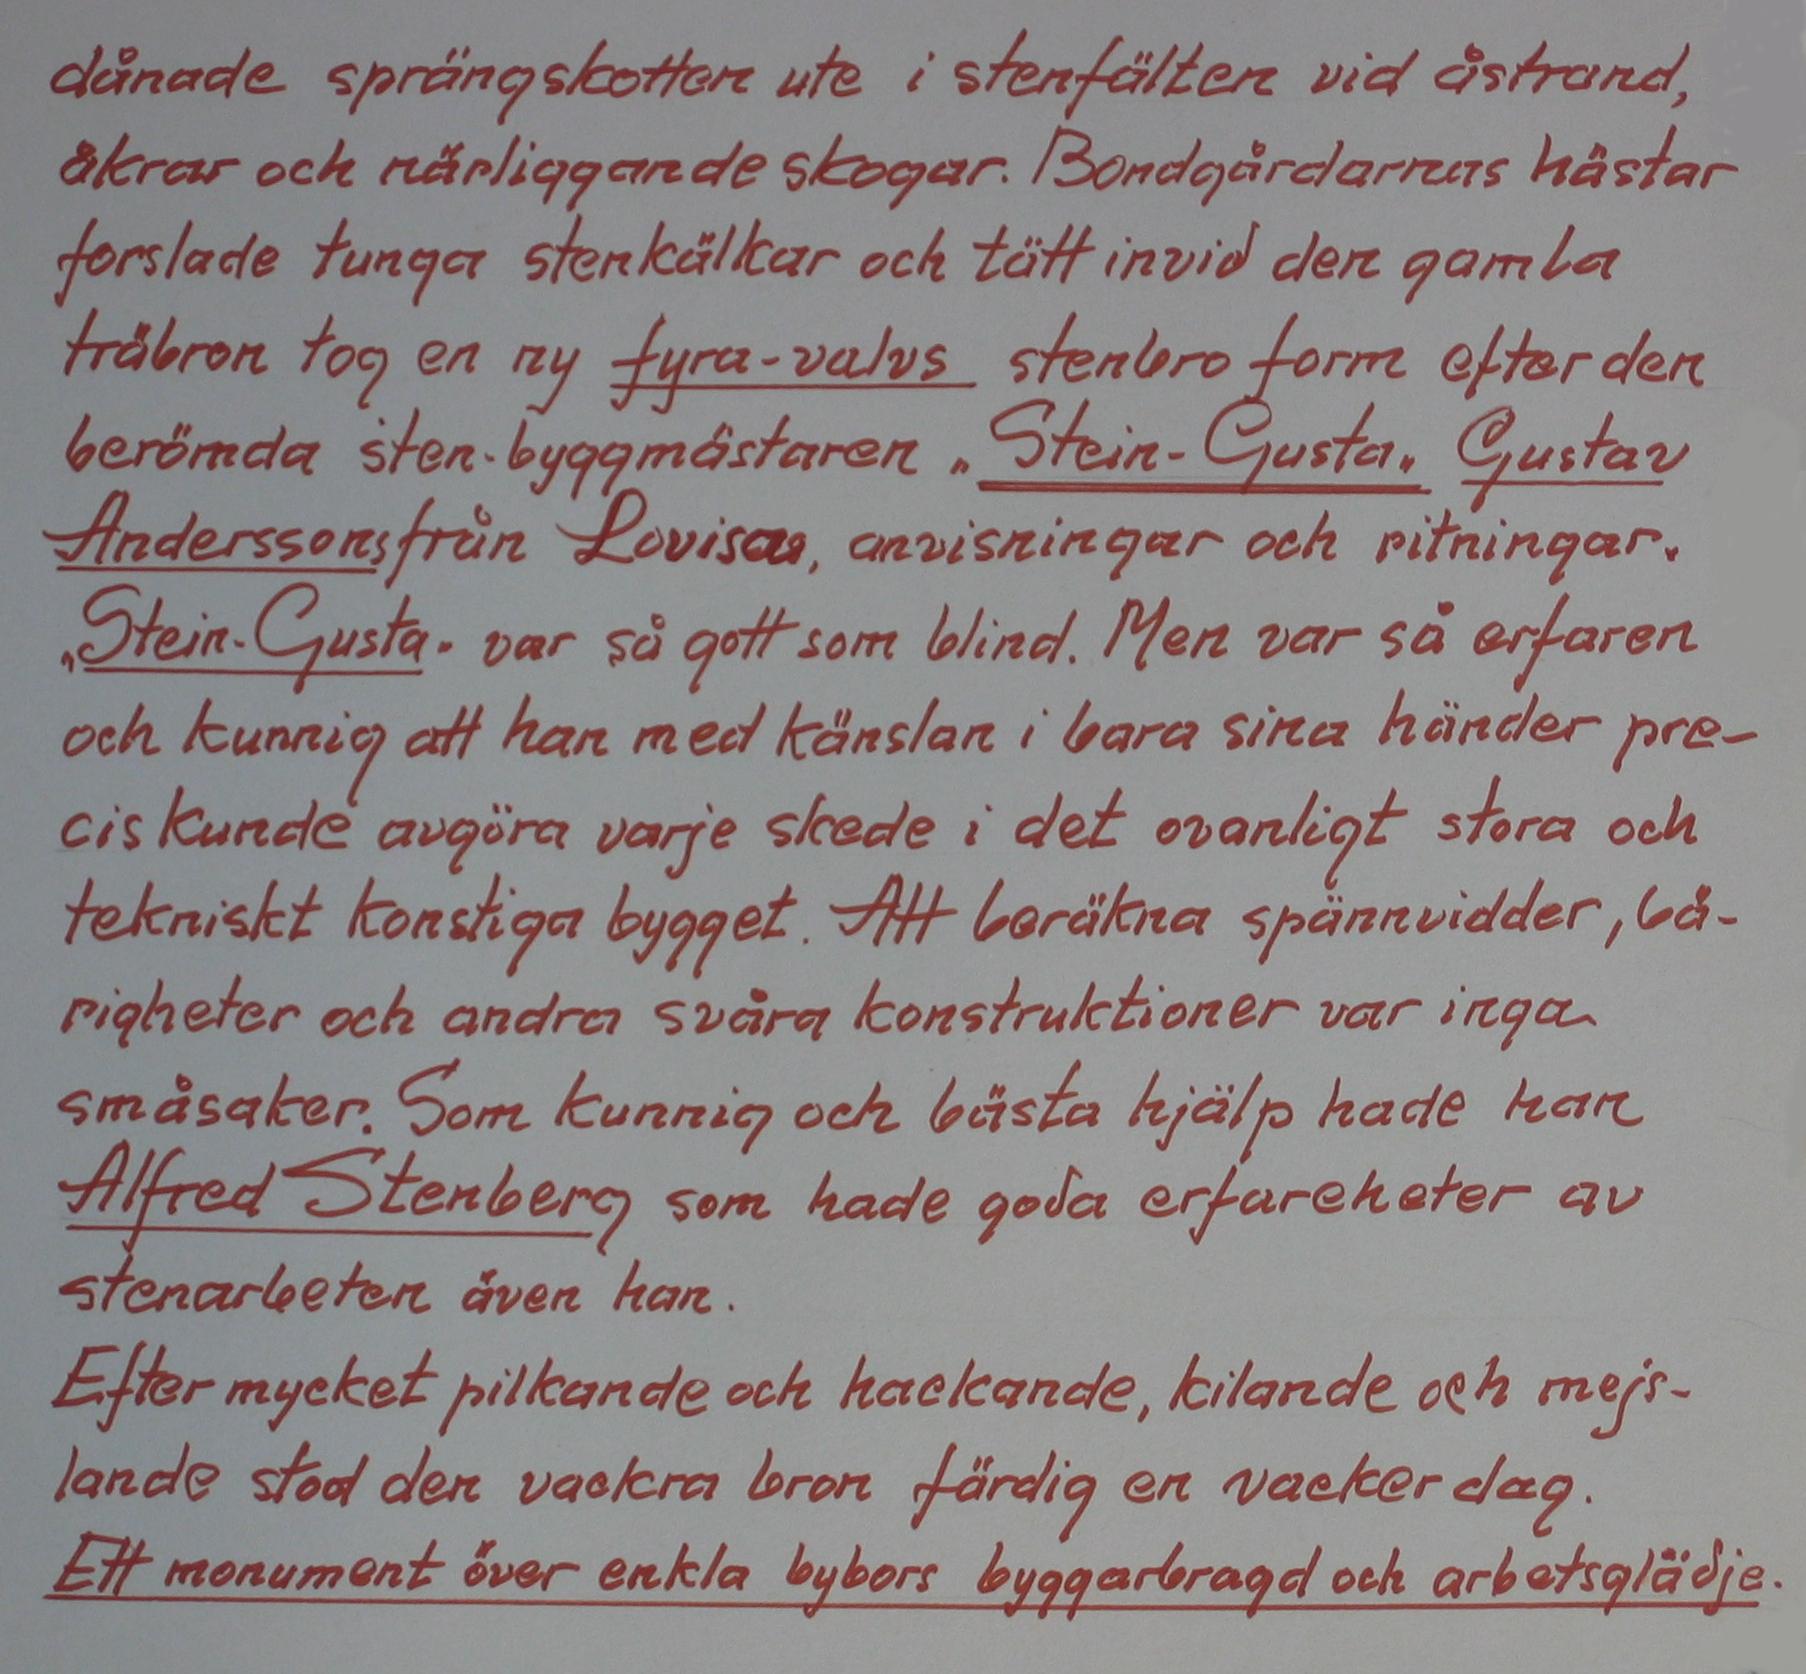 dånade sprängskotten ute i stenfälten vid åstrand,
åkrar och närliggande skogar. Bondgårdarnas hästar
forslade tunga stenkälkar och tätt invid den gamla
träbron tog en ny fyra-valvs stenbro form efter den
berömda sten-byggmästaren „Stein-Gusta„ Gustav
Anderssons från Lovisa, anvisningar och ritningar.
„Stein-Gusta" var så gott som blind. Men var så erfaren
och kunnig att han med känslan i bara sina händer pre-
cis kunde avgöra varje skede i det ovanligt stora och
tekniskt konstiga bygget. Att beräkna spännvidder, bä-
righeter och andra svåra konstruktioner var inga
småsaker. Som kunnig och bästa hjälp hade han
Alfred Stenberg som hade goda erfareheter av
stenarbeten även han.
Efter mycket pilkande och hackande, kilande och mejs-
lande stod den vackra bron färdig en vacker dag.
Ett monument över enkla bybors byggarbragd och arbetsglädje.